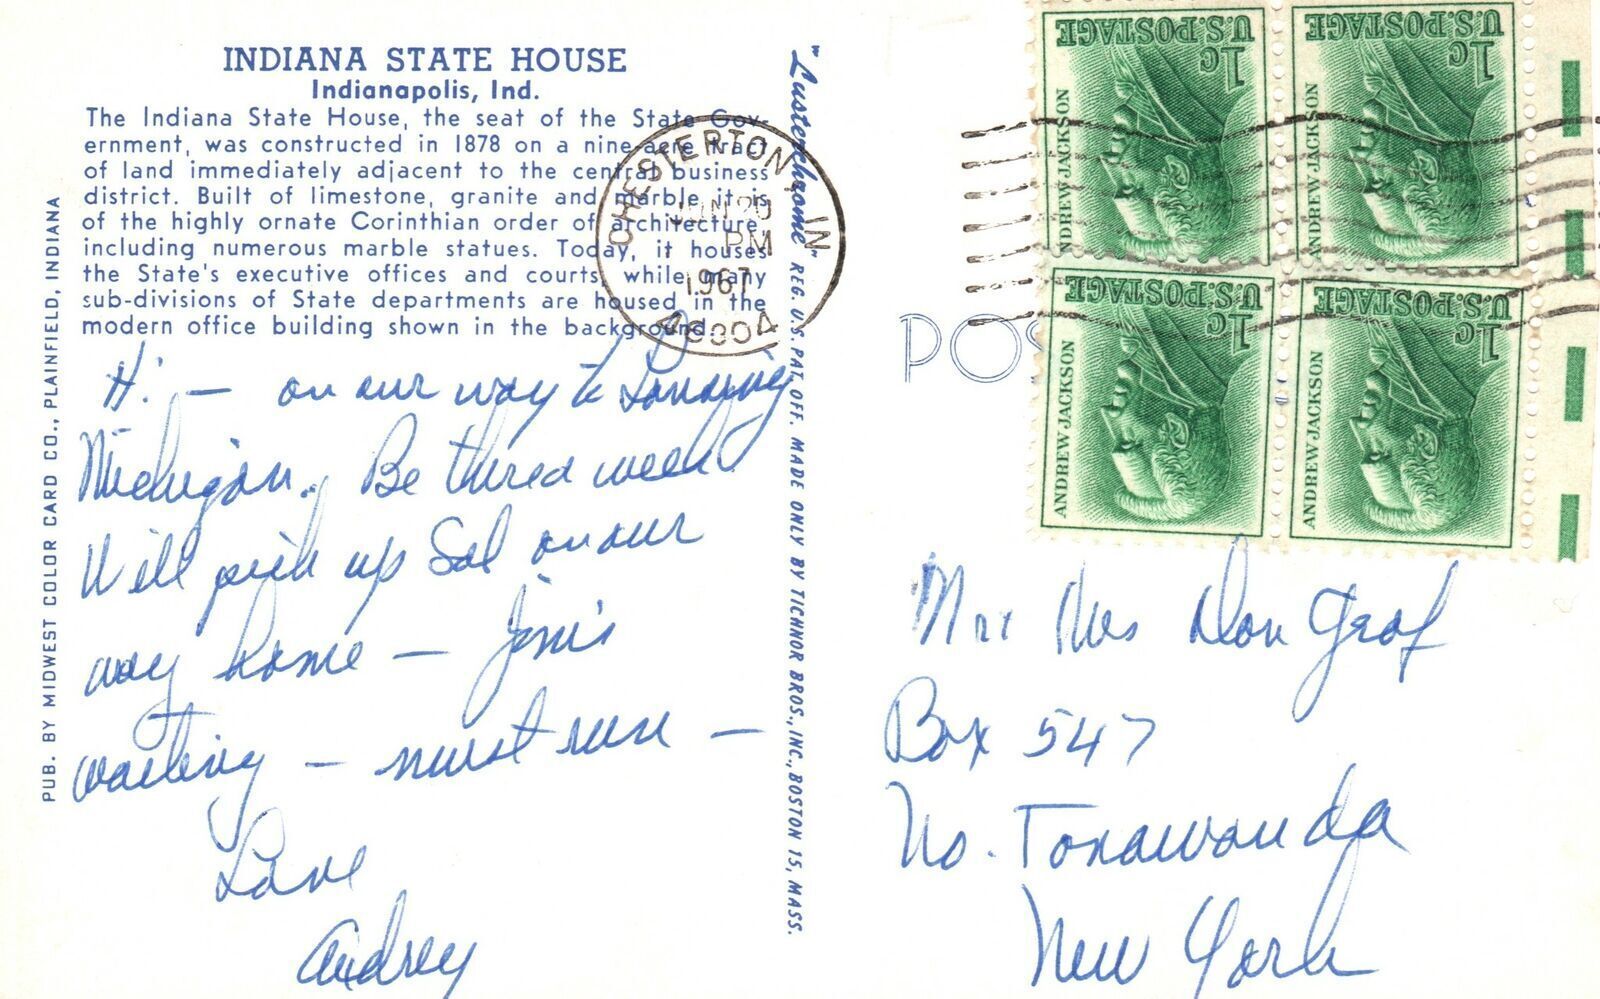 INDIANA STATE HOUSE
Indianapolis, Ind.
The Indiana State House, the seat of the State Gov-
ernment, was constructed in 1878 on a nine acre tract
of land immediately adjacent to the central business
district. Built of limestone, granite and marble it is
of the highly ornate Corinthian order of architecture,
including numerous marble statues. Today, it houses
the State's executive offices and courts, while many
sub-divisions of State departments are housed in the
modern office building shown in the background.
Hi — on our way to Lansing
Michigan. Be there a week
Will pick up Sal on our
way home — Jim's
waiting — must run —
Love
Audrey
PUB. BY MIDWEST COLOR CARD CO., PLAINFIELD, INDIANA
"Lusterchrome" REG. U.S. PAT. OFF. MADE ONLY BY TICHNOR BROS., INC., BOSTON 15, MASS.
CHESTERTON, IN
JUN 20
PM
1967
46304
POS
U.S. POSTAGE
1c
ANDREW JACKSON
U.S. POSTAGE
1c
ANDREW JACKSON
U.S. POSTAGE
1c
ANDREW JACKSON
U.S. POSTAGE
1c
ANDREW JACKSON
Mr & Mrs Don Graf
Box 547
No. Tonawanda
New York